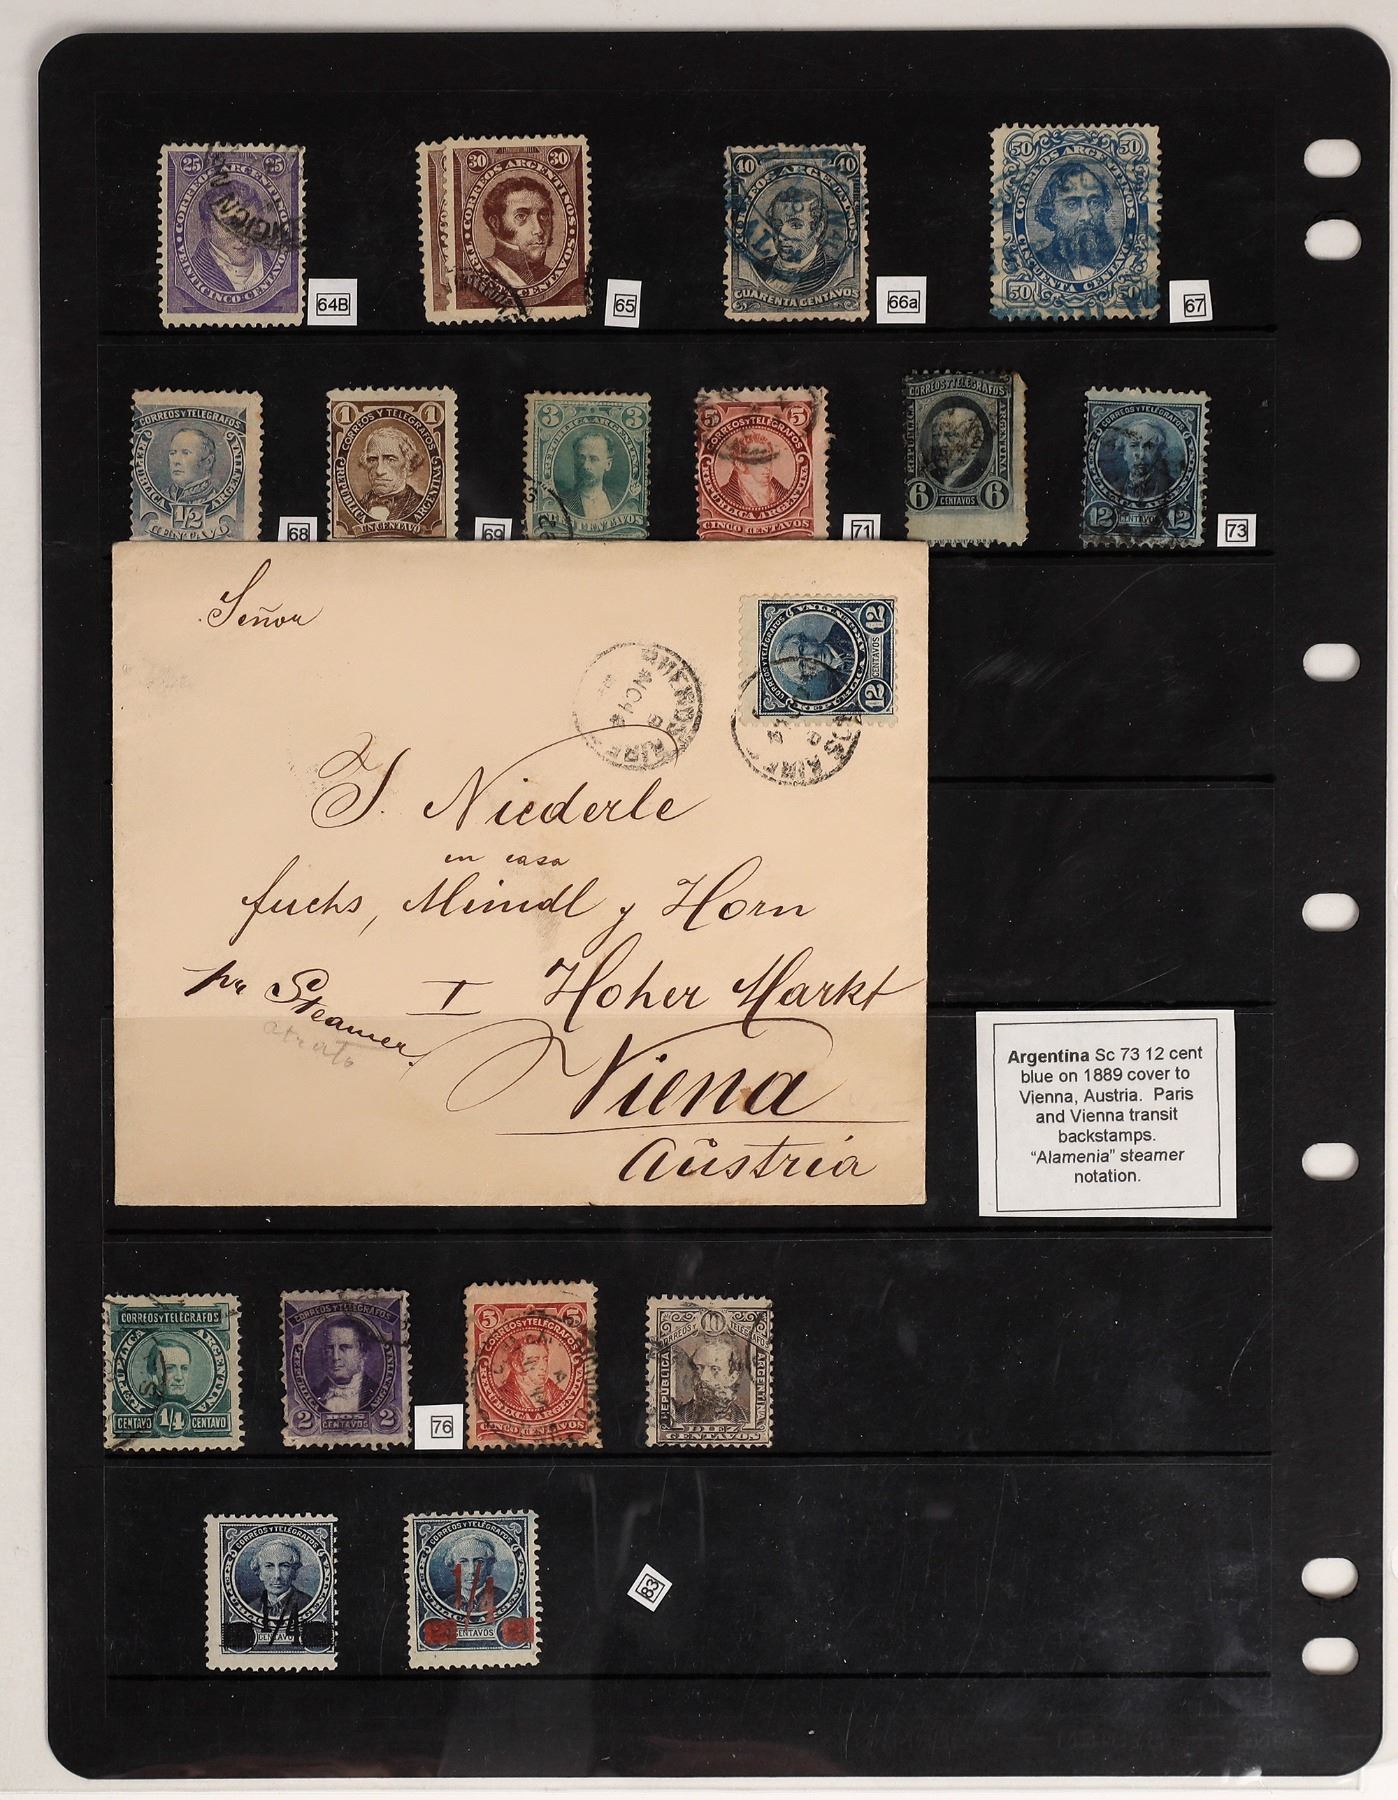 25 25
CORREOS ARGENTINOS
VEINTICINCO CENTAVOS
64B
30 30
CORREOS ARGENTINOS
TREINTA CENTAVOS
65
40 40
CORREOS ARGENTINOS
CUARENTA CENTAVOS
66a
50 50
CORREOS ARGENTINOS
CINCUENTA CENTAVOS
50 50
67
CORREOS Y TELEGRAFOS
REPUBLICA ARGENTINA
1/2
CENTAVO
68
1 1
CORREOS Y TELEGRAFOS
REPUBLICA ARGENTINA
UN CENTAVO
69
3 3
REPUBLICA ARGENTINA
TRES CENTAVOS
5 5
CORREOS Y TELEGRAFOS
REPUBLICA ARGENTINA
CINCO CENTAVOS
71
CORREOS Y TELEGRAFOS
REPUBLICA ARGENTINA
6 CENTAVOS 6
CORREOS Y TELEGRAFOS
12 CENTAVOS 12
73
Señor
BUENOS AIRES
CORREOS Y TELEGRAFOS
12 CENTAVOS 12
J. Niederle
en casa
fuchs, Meindl y Horn
pr Steamer
atrato
I Hoher Markt
Viena
Aŭstria
Argentina Sc 73 12 cent
blue on 1889 cover to
Vienna, Austria. Paris
and Vienna transit
backstamps.
“Alamenia” steamer
notation.
CORREOS Y TELEGRAFOS
REPUBLICA ARGENTINA
CENTAVO 1/4 CENTAVO
CORREOS Y TELEGRAFOS
REPUBLICA ARGENTINA
2 DOS CENTAVOS 2
76
5 5
CORREOS Y TELEGRAFOS
REPUBLICA ARGENTINA
CINCO CENTAVOS
10
CORREOS Y TELEGRAFOS
REPUBLICA ARGENTINA
DIEZ
CENTAVOS
CORREOS Y TELEGRAFOS
1/4
CENTAVOS
CORREOS Y TELEGRAFOS
1/4
CENTAVOS
83